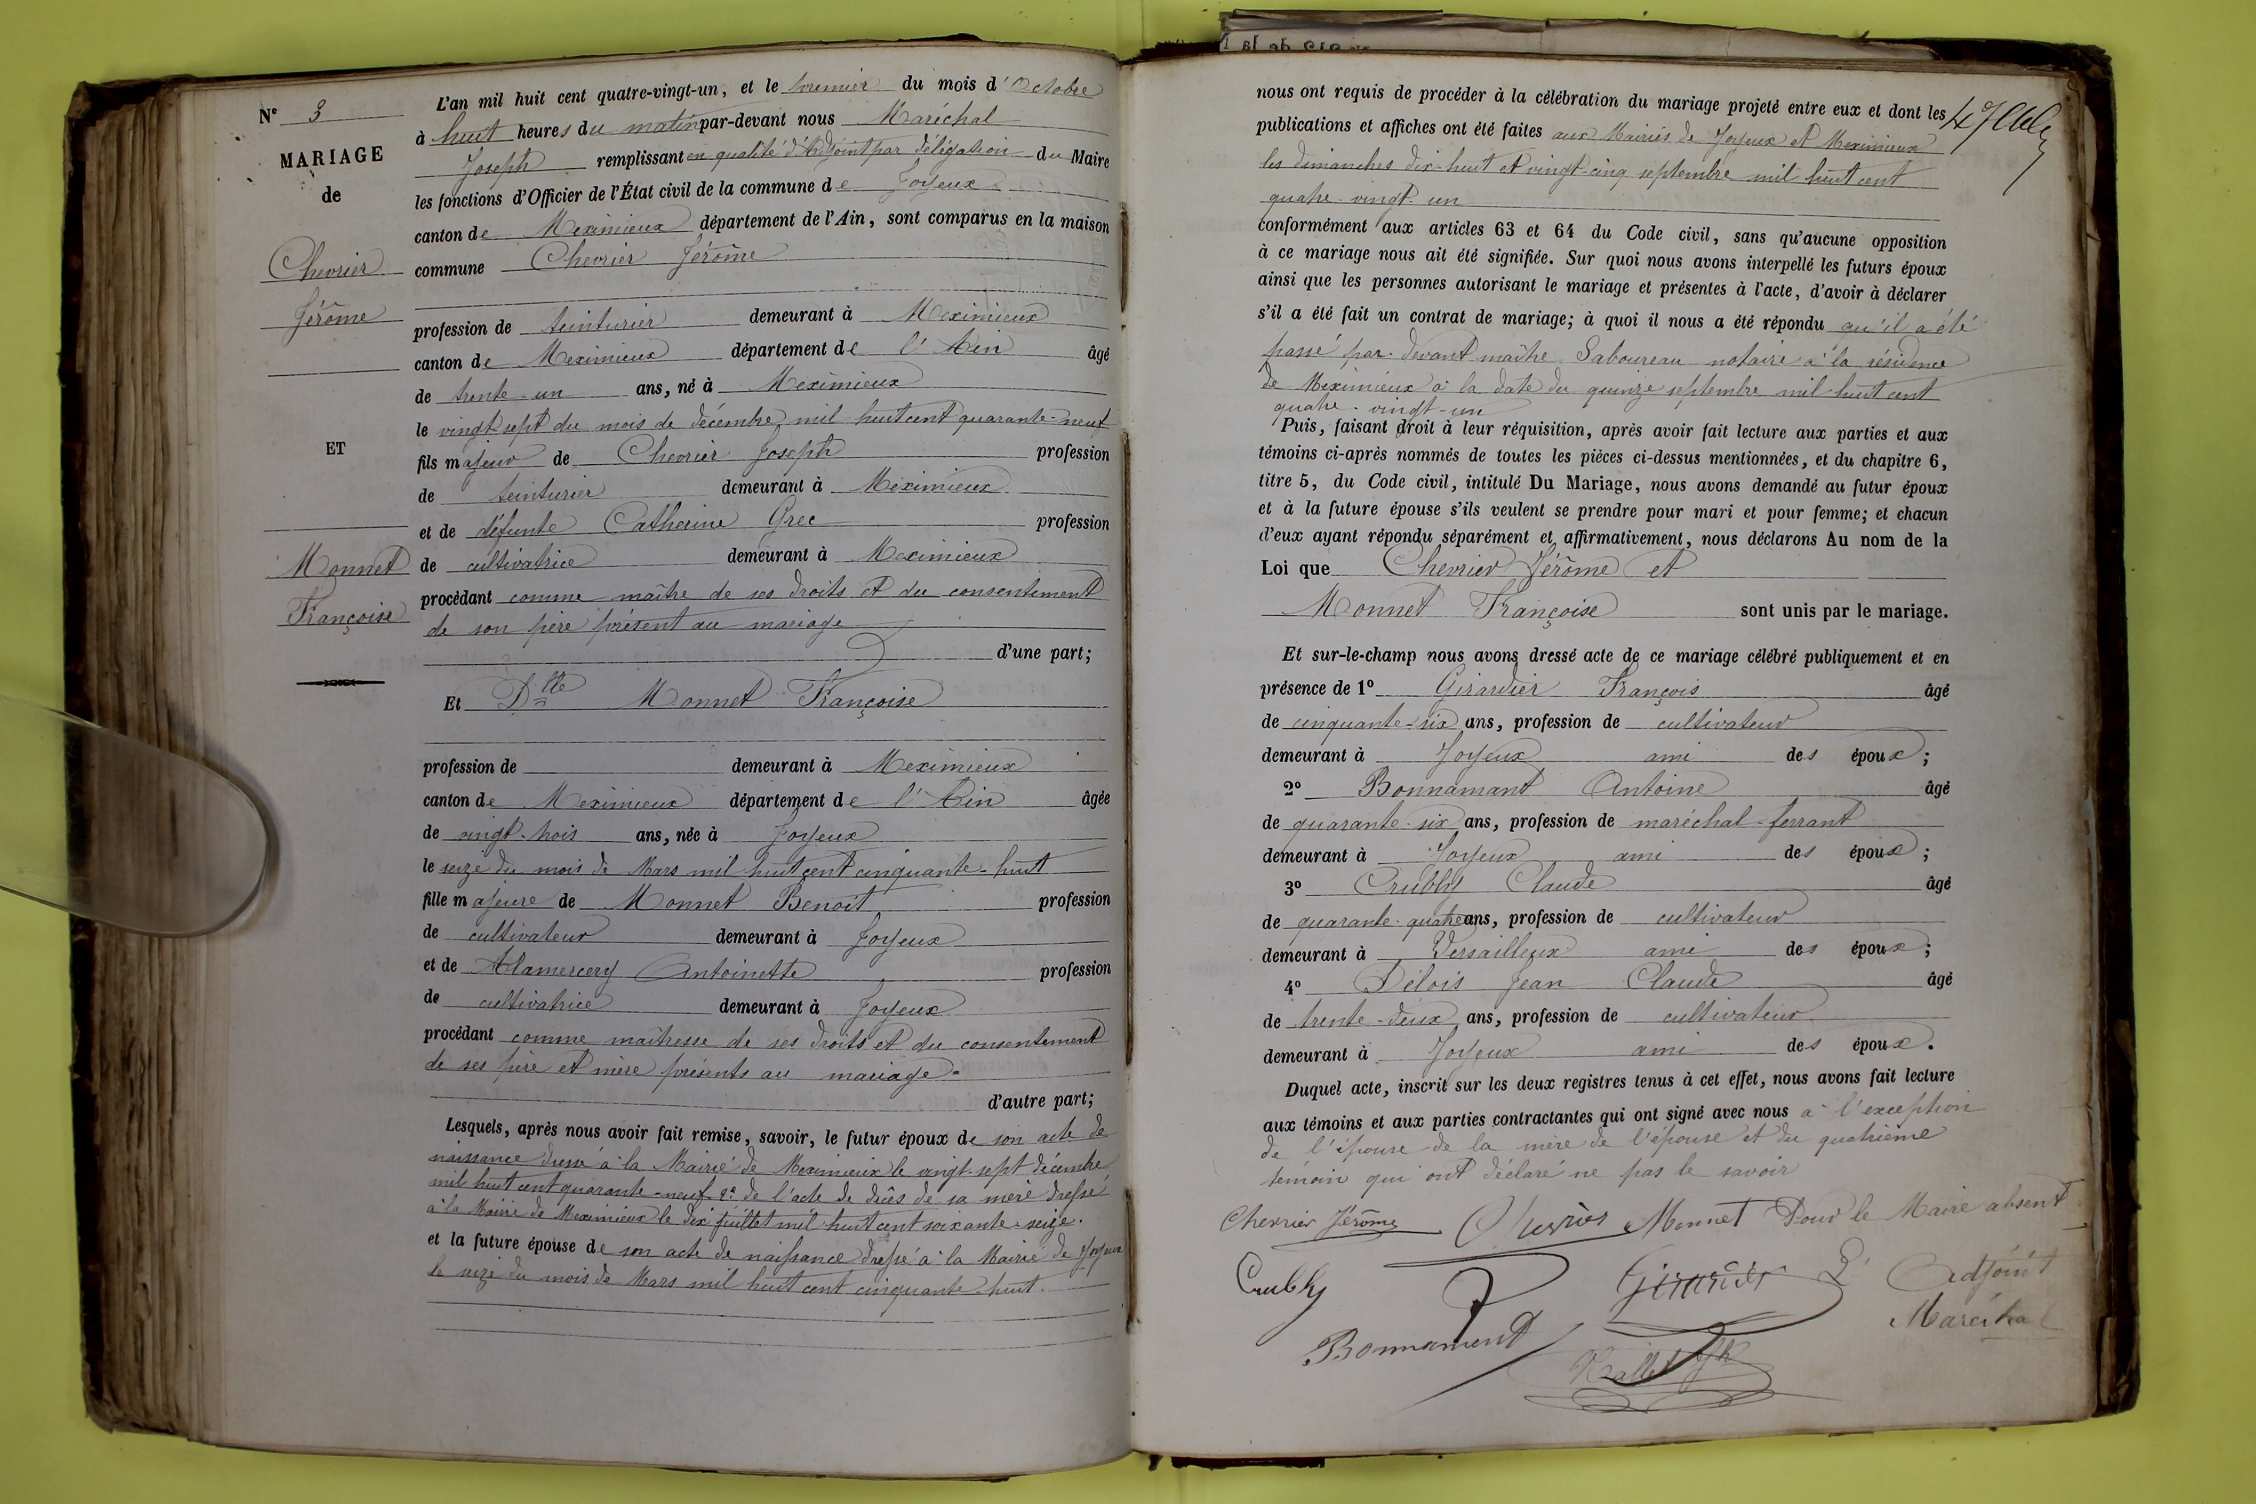 N° 3
MARIAGE
de
Chevrier
Jérôme
ET
Monnet
Françoise
L'an mil huit cent quatre-vingt-un, et le premier du mois d'Octobre
à huit heures du matin par-devant nous Maréchal
Joseph remplissant en qualité d'Adjoint par délégation du Maire
les fonctions d'Officier de l'État civil de la commune de Joyeux
canton de Meximieux département de l'Ain, sont comparus en la maison
commune Chevrier Jérôme
profession de teinturier demeurant à Meximieux
canton de Meximieux département de l'Ain âgé
de trente-un ans, né à Meximieux
le vingt-sept du mois de décembre mil huit cent quarante-neuf
fils majeur de Chevrier Joseph profession
de teinturier demeurant à Meximieux
et de défunte Catherine Grec profession
de cultivatrice demeurant à Meximieux
procédant comme maître de ses droits et du consentement
de son père présent au mariage
d'une part;
Et Dlle Monnet Françoise
profession de demeurant à Meximieux
canton de Meximieux département de l'Ain âgée
de vingt-trois ans, née à Joyeux
le seize du mois de Mars mil huit cent cinquante-huit
fille majeure de Monnet Benoît profession
de cultivateur demeurant à Joyeux
et de Alamercery Antoinette profession
de cultivatrice demeurant à Joyeux
procédant comme maîtresse de ses droits et du consentement
de ses père et mère présents au mariage
d'autre part;
Lesquels, après nous avoir fait remise, savoir, le futur époux de son acte de
naissance dressé à la Mairie de Meximieux le vingt-sept décembre
mil huit cent quarante-neuf 2° de l'acte de décès de sa mère dressé
à la Mairie de Meximieux le dix juillet mil huit cent soixante-seize.
et la future épouse de son acte de naissance dressé à la Mairie de Joyeux
le seize du mois de Mars mil huit cent cinquante-huit.
nous ont requis de procéder à la célébration du mariage projeté entre eux et dont les
publications et affiches ont été faites aux Mairies de Joyeux et Meximieux
les dimanches dix-huit et vingt-cinq septembre mil huit cent
quatre-vingt-un
conformément aux articles 63 et 64 du Code civil, sans qu'aucune opposition
à ce mariage nous ait été signifiée. Sur quoi nous avons interpellé les futurs époux
ainsi que les personnes autorisant le mariage et présentes à l'acte, d'avoir à déclarer
s'il a été fait un contrat de mariage; à quoi il nous a été répondu qu'il a été
passé par-devant maître Saboureau notaire à la résidence
de Meximieux à la date du quinze septembre mil huit cent
quatre-vingt-un
Puis, faisant droit à leur réquisition, après avoir fait lecture aux parties et aux
témoins ci-après nommés de toutes les pièces ci-dessus mentionnées, et du chapitre 6,
titre 5, du Code civil, intitulé Du Mariage, nous avons demandé au futur époux
et à la future épouse s'ils veulent se prendre pour mari et pour femme; et chacun
d'eux ayant répondu séparément et affirmativement, nous déclarons Au nom de la
Loi que Chevrier Jérôme et
Monnet Françoise sont unis par le mariage.
Et sur-le-champ nous avons dressé acte de ce mariage célébré publiquement et en
présence de 1° Girardier François âgé
de cinquante-six ans, profession de cultivateur
demeurant à Joyeux ami des époux;
2° Bonnamant Antoine âgé
de quarante-six ans, profession de maréchal-ferrant
demeurant à Joyeux ami des époux;
3° Crubly Claude âgé
de quarante-quatre ans, profession de cultivateur
demeurant à Versailleux ami des époux;
4° Délois Jean Claude âgé
de trente-deux ans, profession de cultivateur
demeurant à Joyeux ami des époux.
Duquel acte, inscrit sur les deux registres tenus à cet effet, nous avons fait lecture
aux témoins et aux parties contractantes qui ont signé avec nous à l'exception
de l'épouse de la mère de l'épouse et du quatrième
témoin qui ont déclaré ne pas le savoir
Chevrier Jérôme Chevrier Monnet Pour le Maire absent
Crubly Girardier L'Adjoint
Bonnamant Maréchal